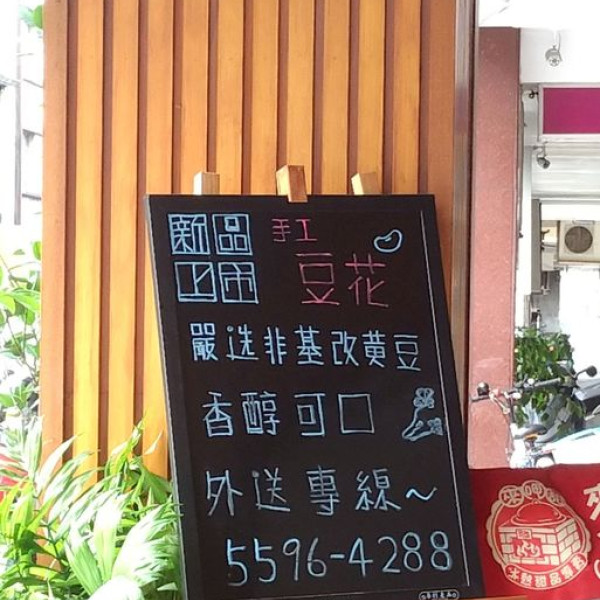 新品
上市
手工
豆花
嚴选非基改黄豆
香醇可口
外送專線~
5596-4288